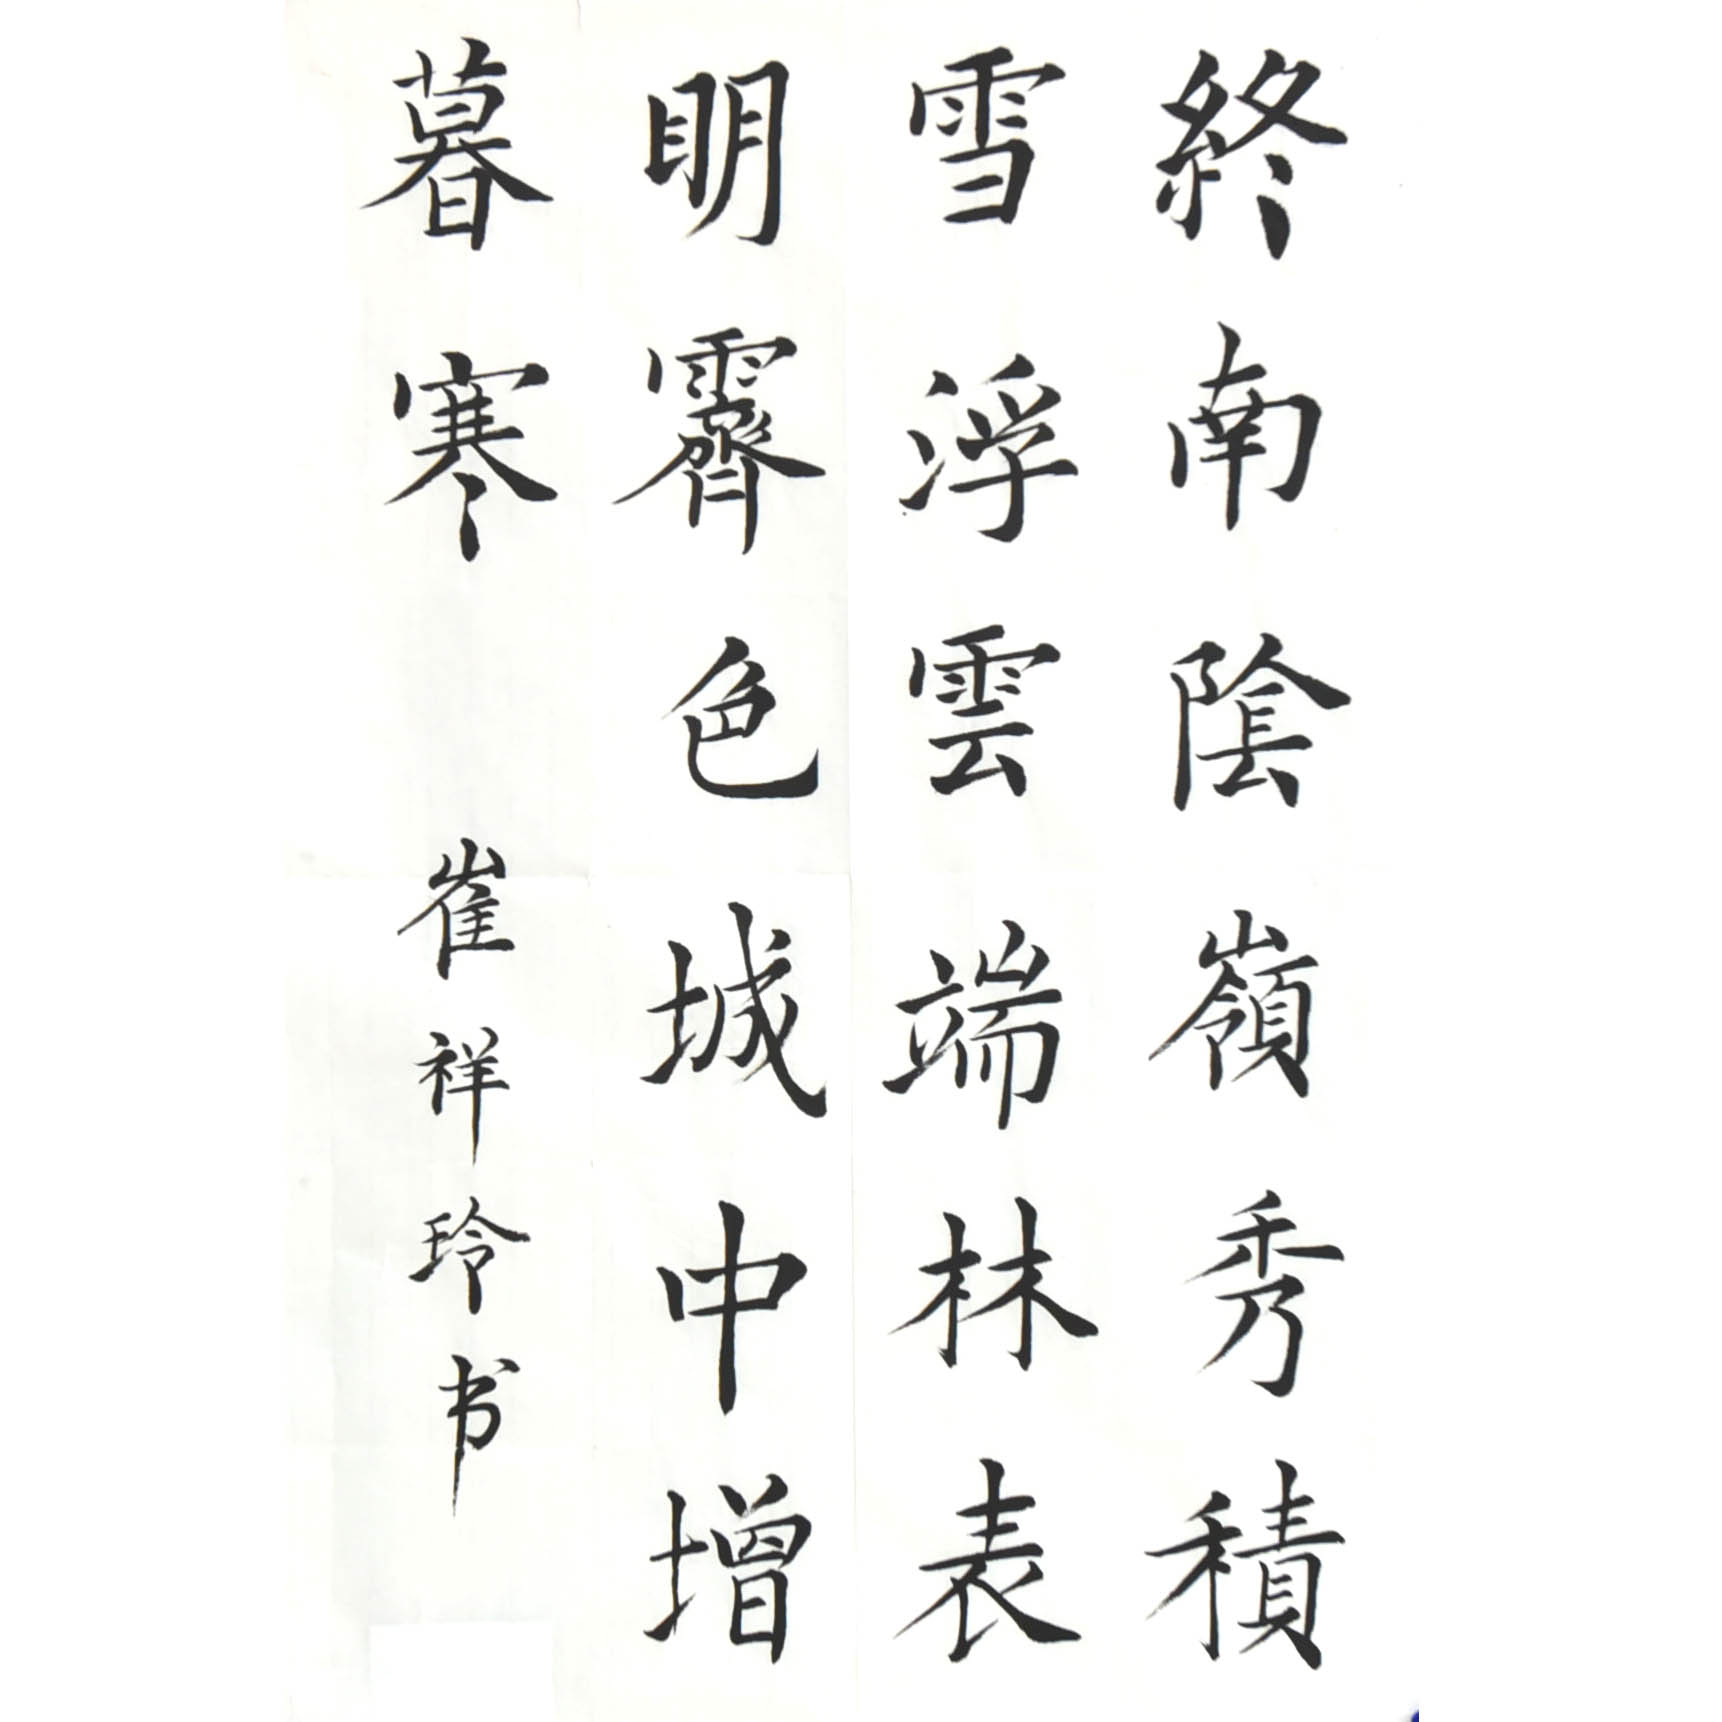 終南陰嶺秀積
雪浮雲端林表
明霽色城中增
暮寒
崔祥玲书